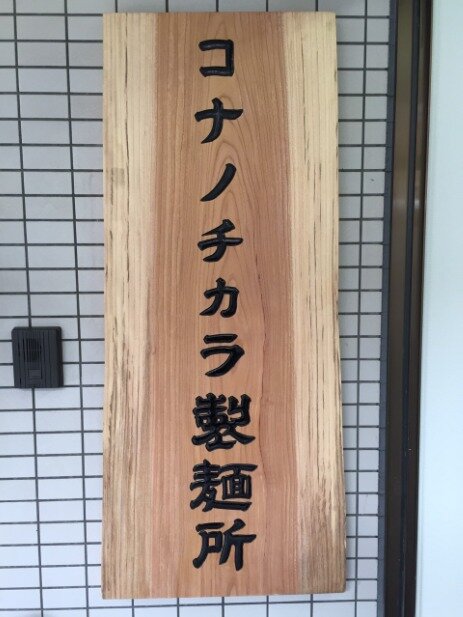 コナノチカラ製麺所